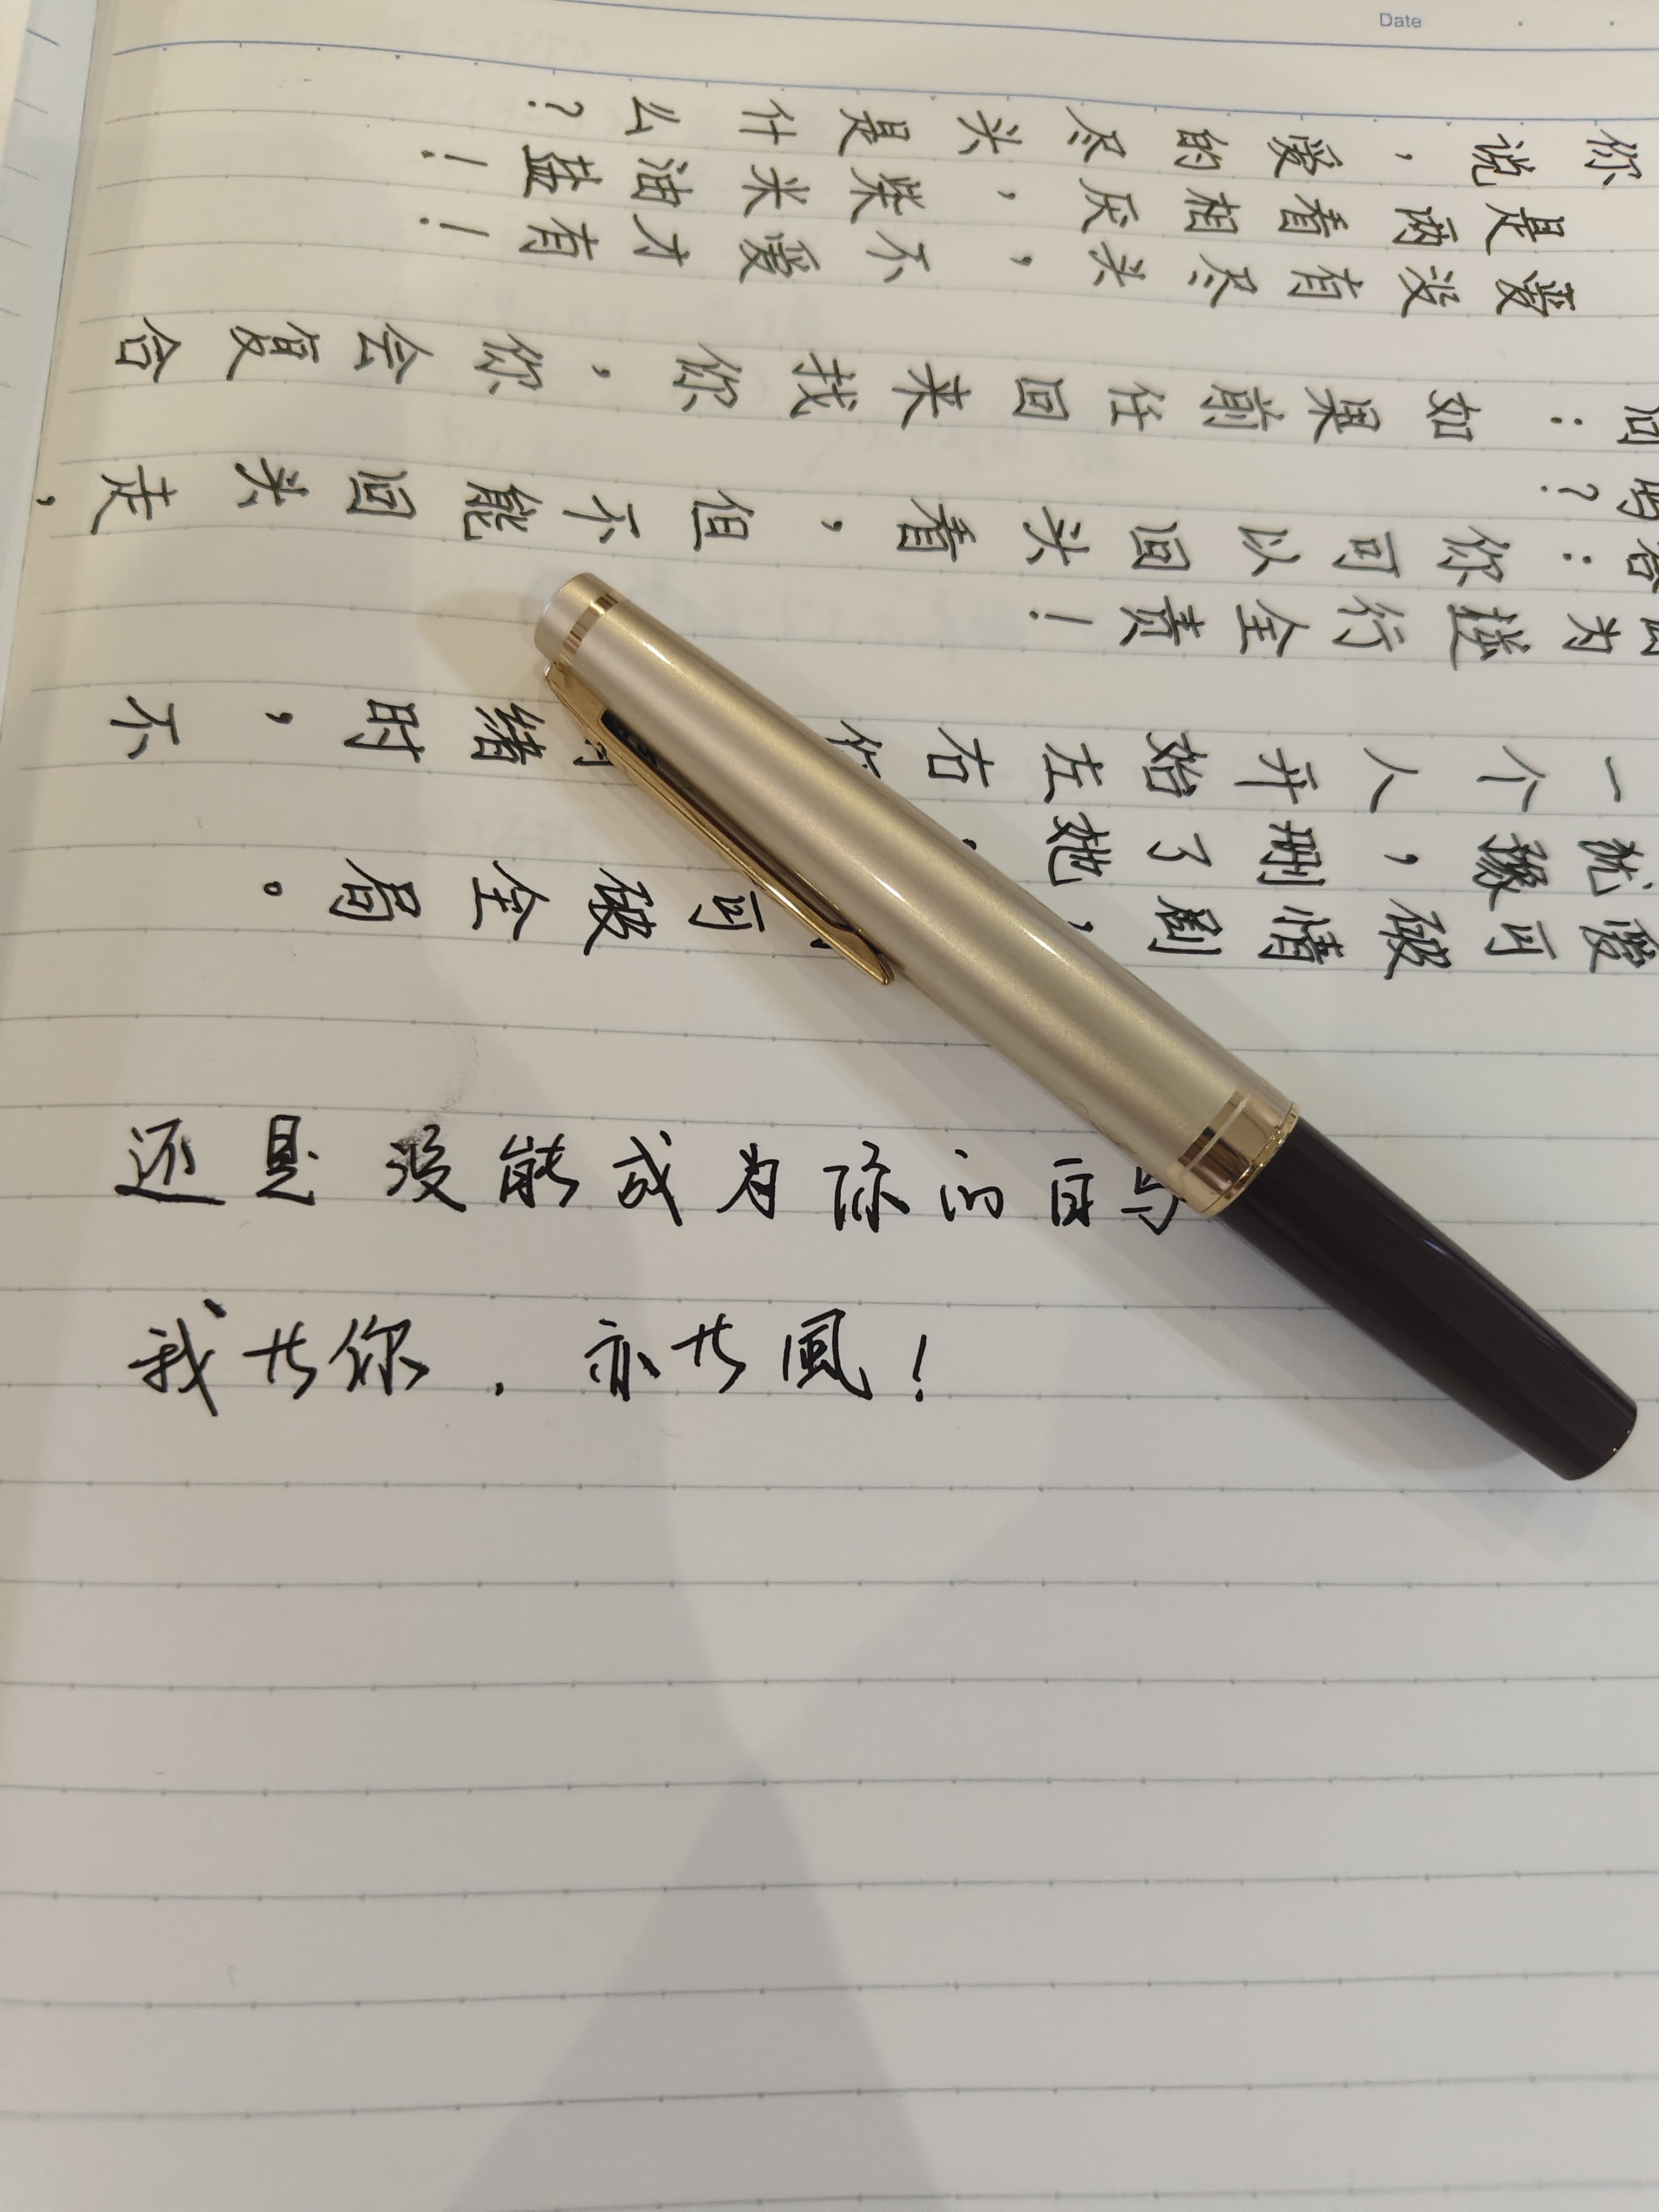 Date
你说，爱的尽头是什么？
是两看相厌，柴米油盐！
爱没有尽头，不爱才有！
问：如果前任回来找你，你会复合
吗？
答：你可以回头看，但不能回头走，
因为逆行全责！
一个人开始左右你 绪时，不
犹豫，删了她
爱可破情剧， 可破全局。
还是没能成为你的
我 你，亦 风！